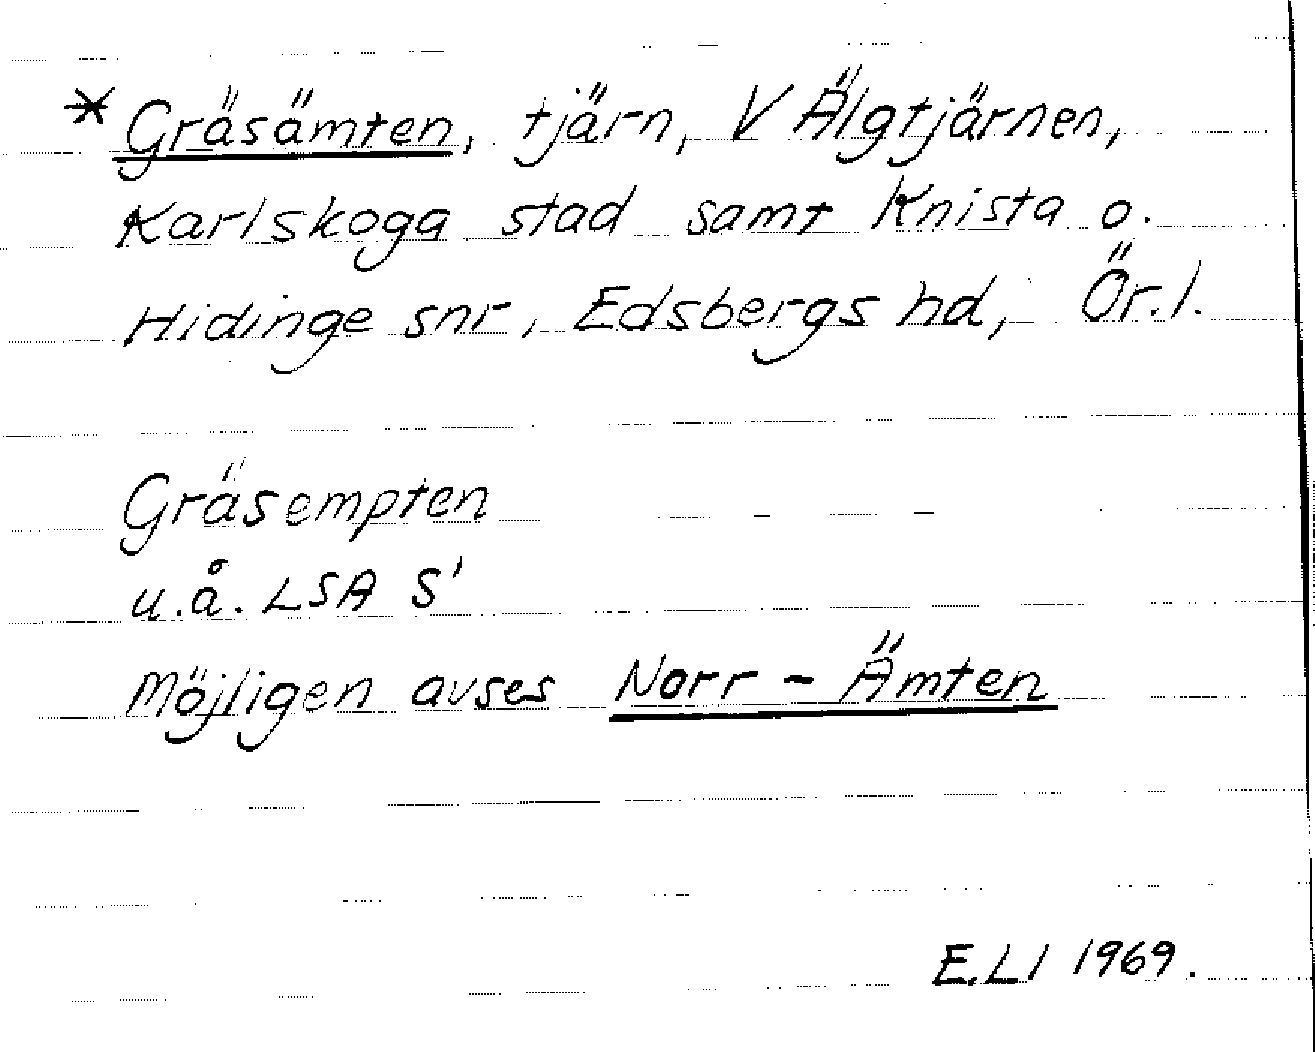 * Gräsämten, tjärn, V Älgtjärnen,
Karlskoga stad samt Knista o.
Hidinge snr, Edsbergs hd, Ör.l.
Gräsempten
u.å. LSA S'
Möjligen avses Norr-Ämten
E.LI 1969.